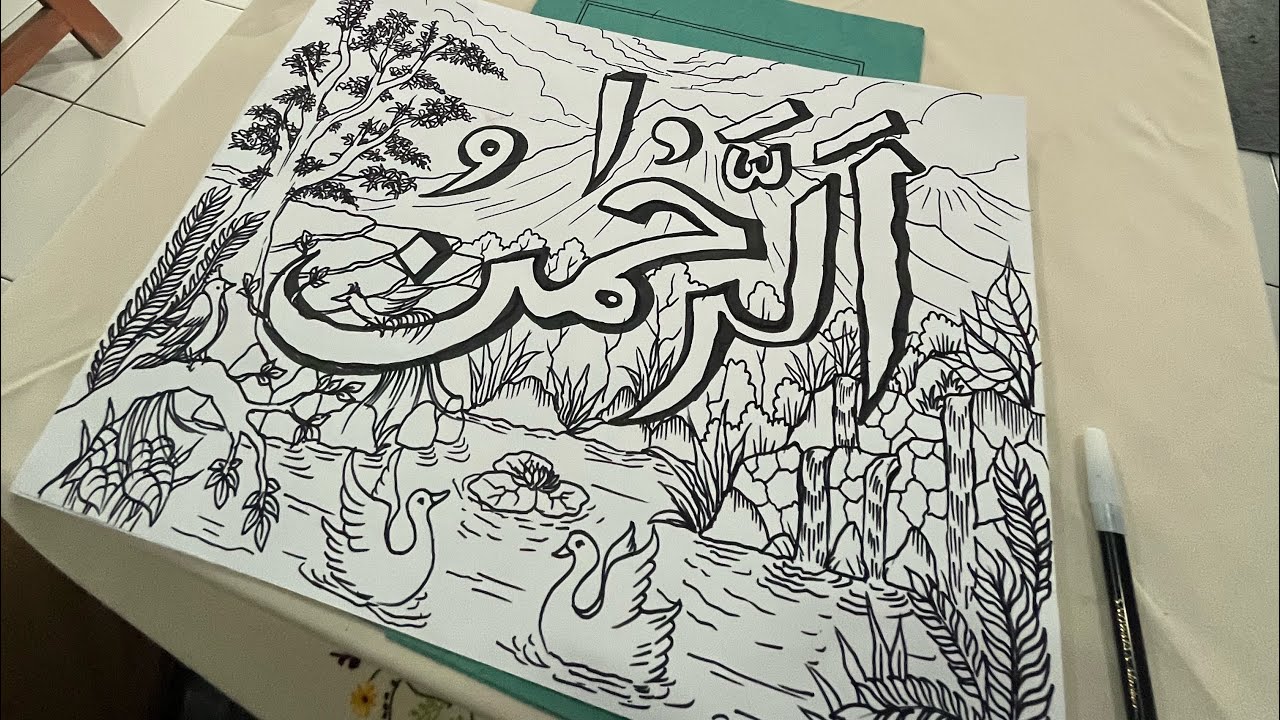 اَلرَّحْمٰنُ